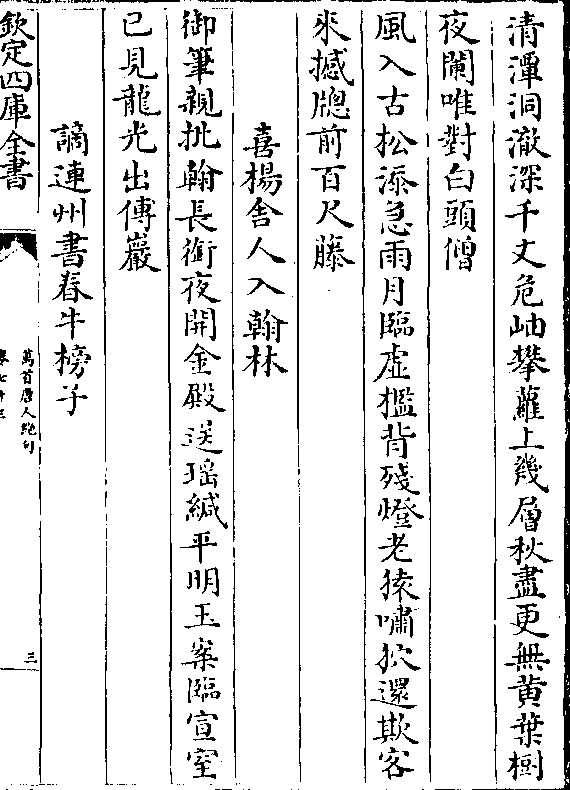 清潭洞澈深千丈危岫攀蘿上幾層秋盡更無黄葉樹
夜闌唯對白頭僧
風入古松添急雨月臨虚檻背殘燈老猿嘯狖還欺客
來撼牕前百尺藤
喜楊舍人入翰林
御筆親批翰長銜夜開金殿送瑶緘平明玉案臨宣室
已見龍光出傅巖
謫連州書春牛榜子
欽定四庫全書
萬首唐人絶句
三